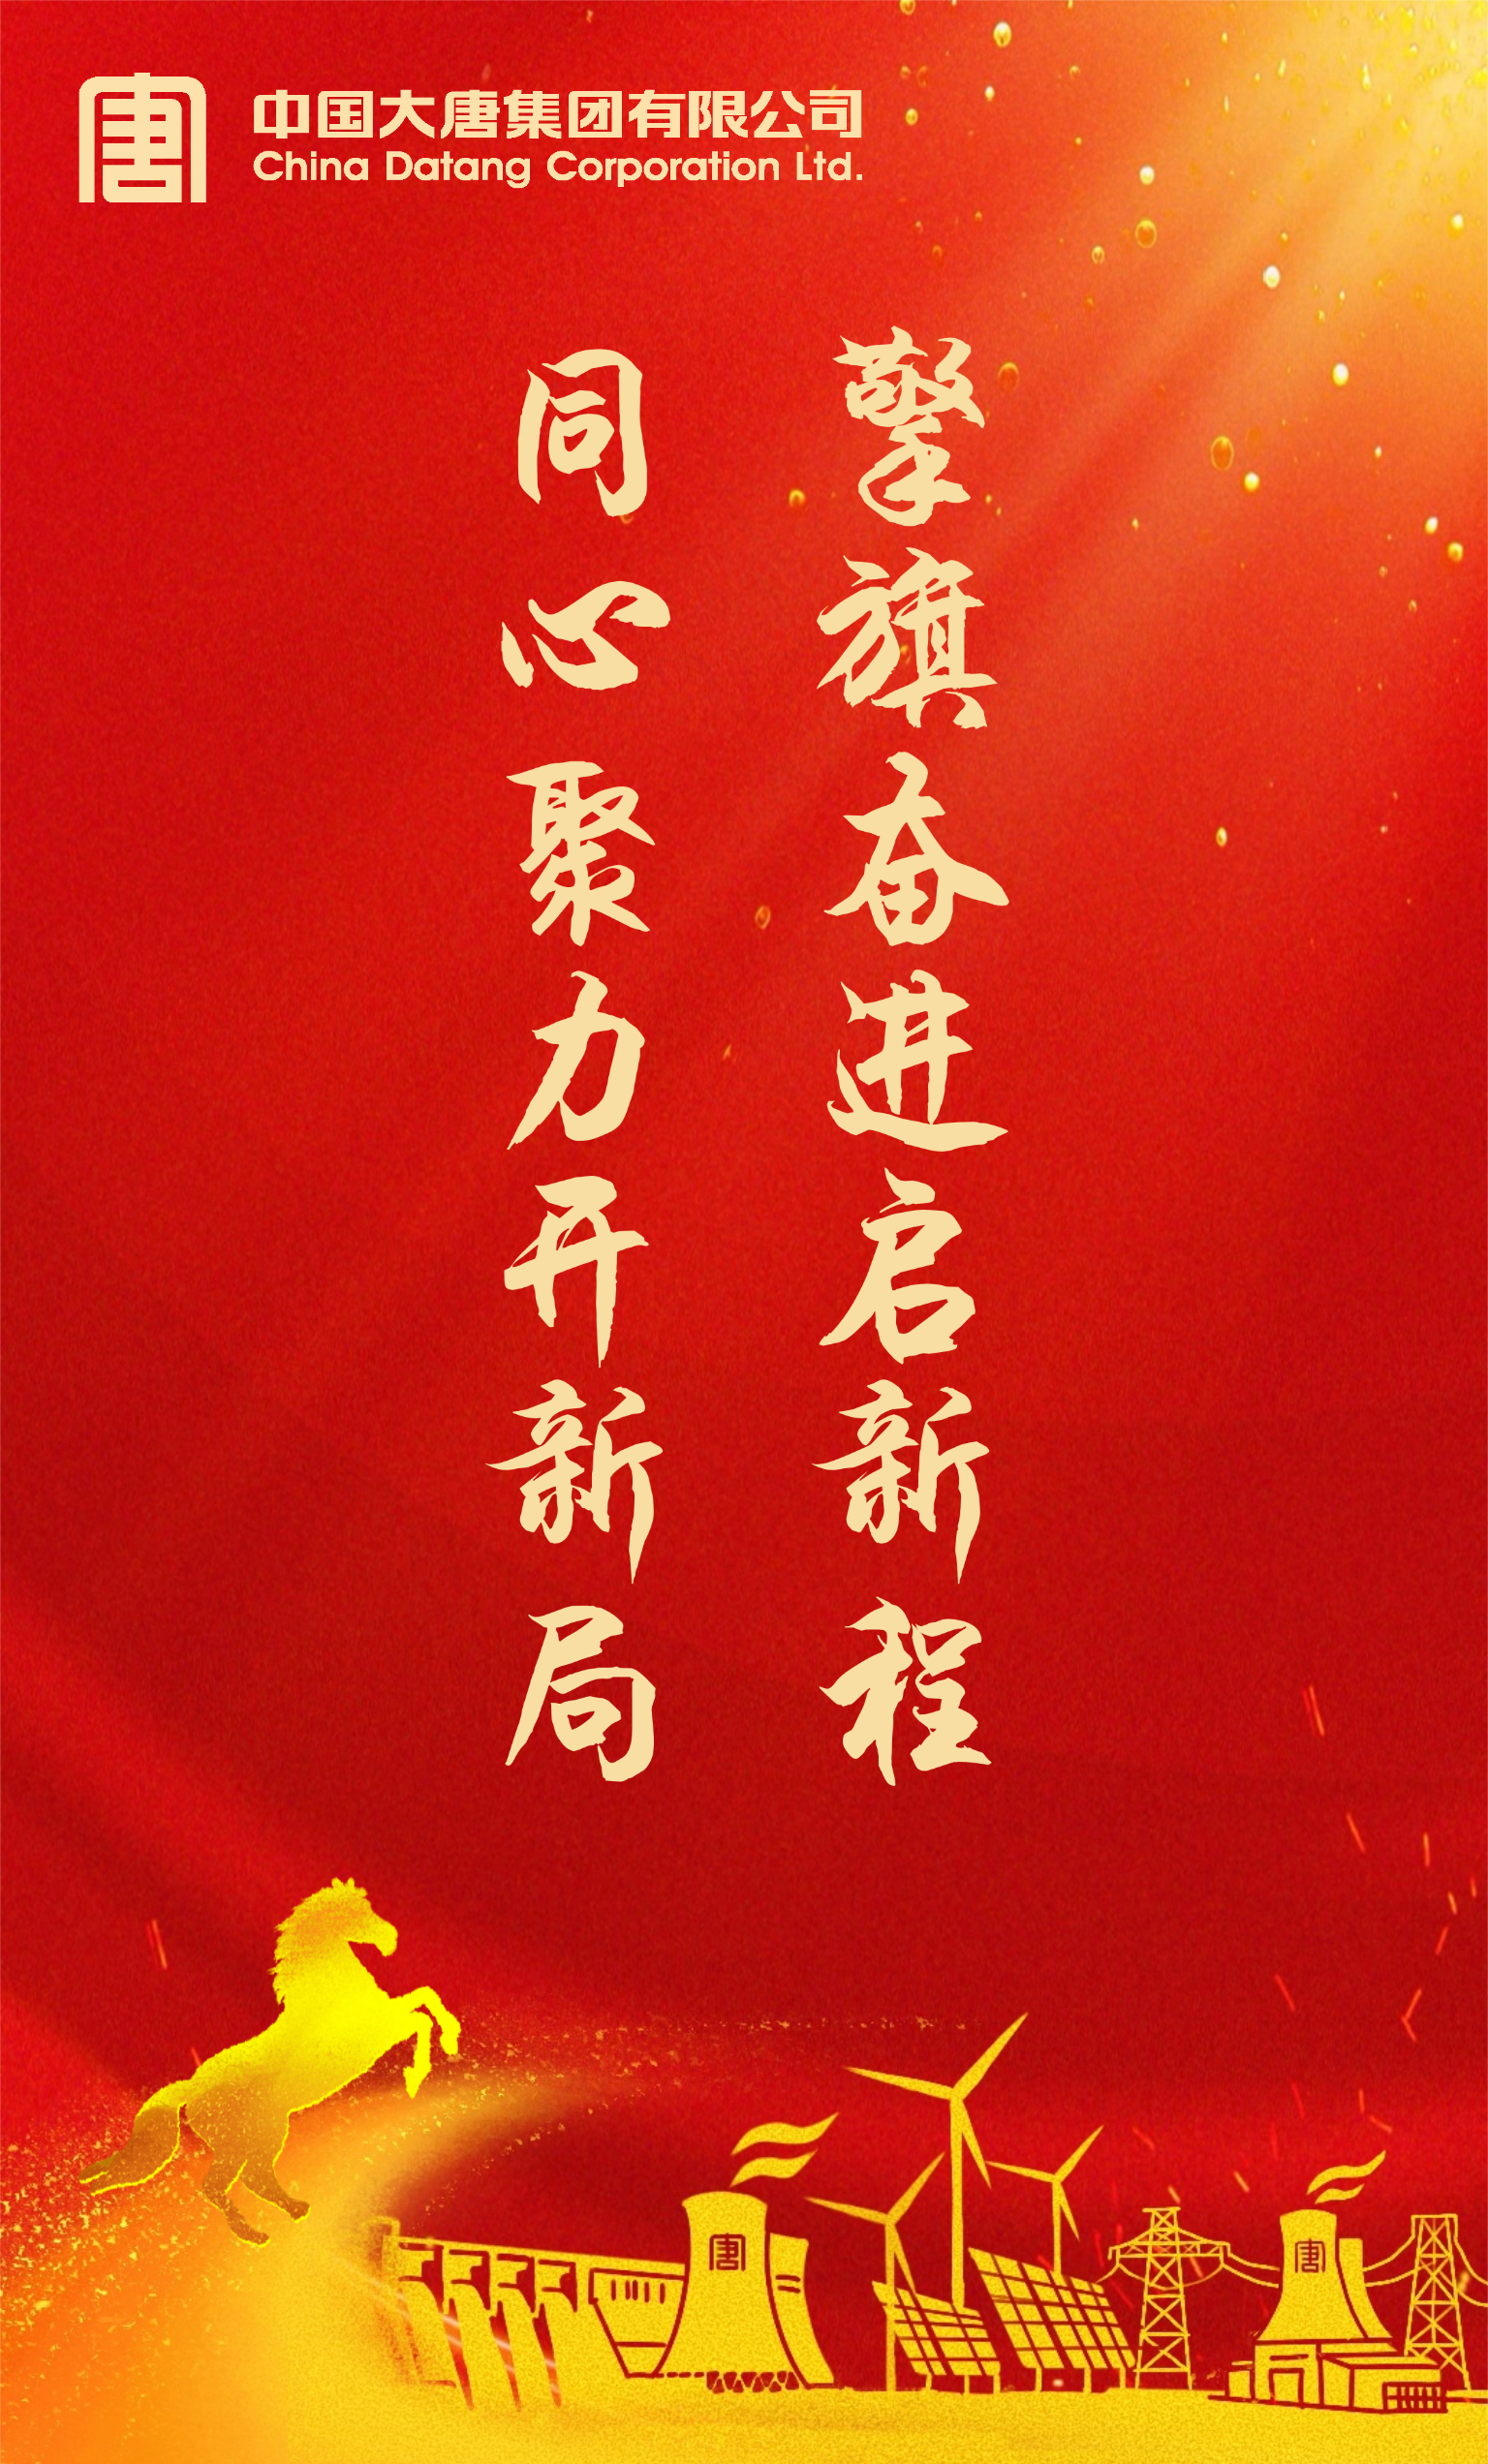 唐
中国大唐集团有限公司
China Datang Corporation Ltd.
擎旗奋进启新程
同心聚力开新局
唐
唐